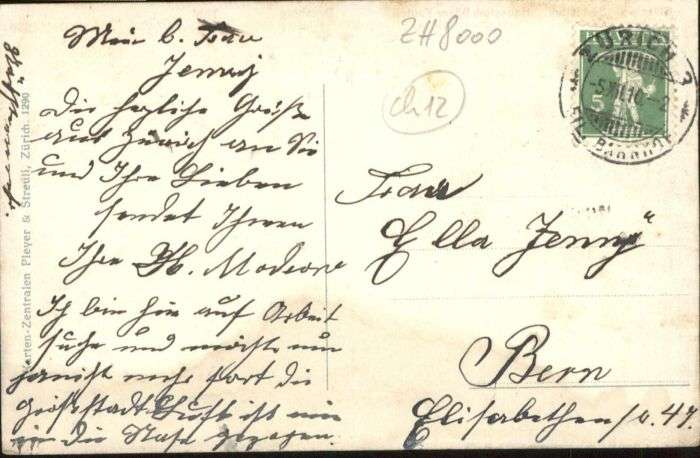 Mein l. Frau
Jenny
Die herzliche Grüße
aus Zürich an Sie
und Ihre Lieben
sendet Ihnen
Ihre
Ich bin hier auf Arbeit
suche und möchte nun
gar nicht mehr fort die
Großstadt Luft ist mir
in die Nase gezogen.
Karten-Zentralen Pleyer & Streuli, Zürich. 1290
ZH8000
ch 12
ZÜRICH
5
Frau
Ella Jenny
Bern
Elisabethenstr. 47